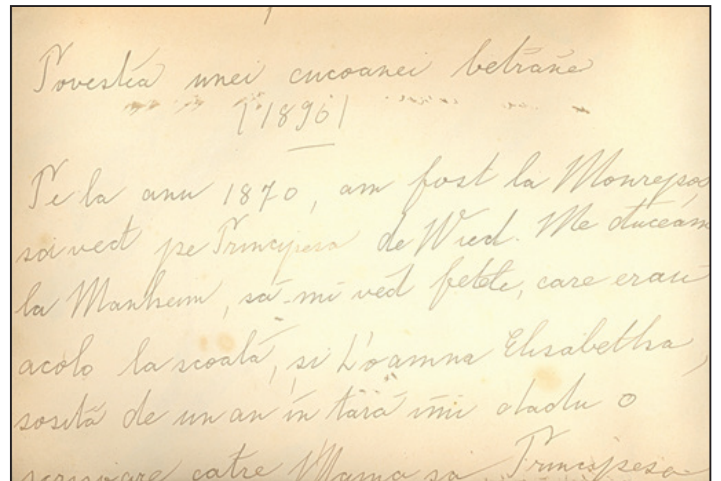 Povestea unei cucoanei betrâne
(1896)
Pe la anu 1870, am fost la Monrepos
sa ved pe Principesa de Wied. Me duceam
la Manheim, să-mi ved fetele, care erau
acolo la scoală, si Doamna Elisabetha,
sosită de un an în tară imi dadu o
scrisoare catre Mama sa, Principesa